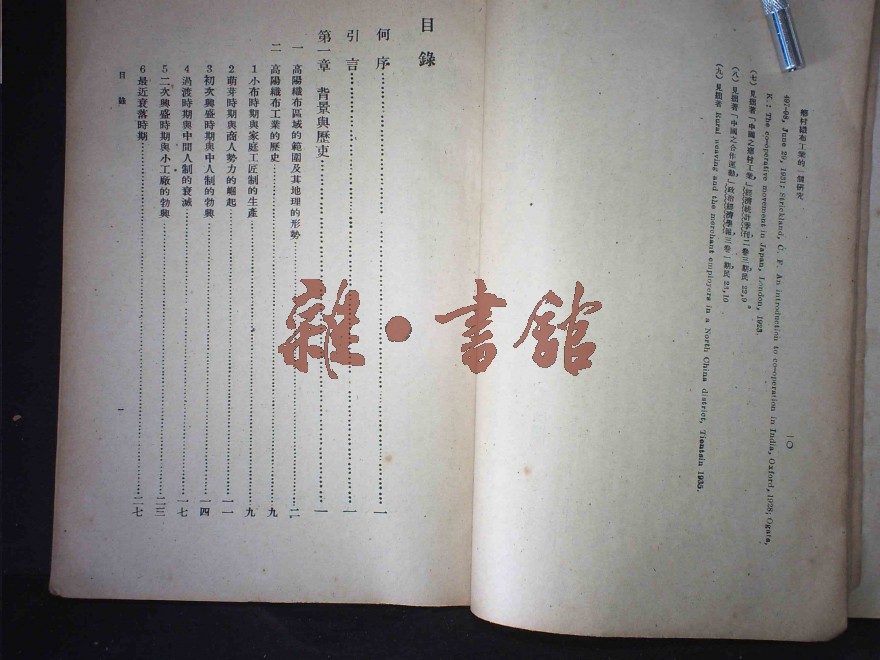 鄉村織布工業的一個研究
一〇
497-08, June 29, 1931; Strickland, C. F. An introduction to co-operation in India, Oxford, 1928; Ogata,
K.: The co-operative movement in Japan, London, 1923.
(七) 見拙著「中國之鄉村工業」經濟統計季刊二卷三期民 22,9。
(八) 見拙著「中國之合作運動」政治經濟學報三卷一期民 23,10
(九) 見拙著 Rural weaving and the merchant employers in a North China district, Tientsin 1935.
目錄
何序 一
引言 一
第一章 背景與歷史 一
一 高陽織布區域的範圍及其地理的形勢 二
二 高陽織布工業的歷史 九
1 小布時期與家庭工匠制的生產 九
2 萌芽時期與商人勢力的崛起 一一
3 初次興盛時期與中人制的勃興 一四
4 渦渡時期與中間人制的衰滅 一七
5 二次興盛時期與小工廠的勃興 二三
6 最近衰落時期 二七
目錄
一
雜·書館